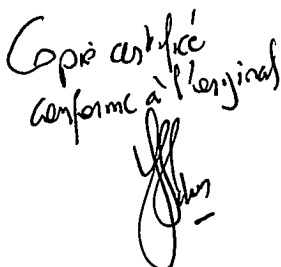 Copie certifié
conforme à l'original